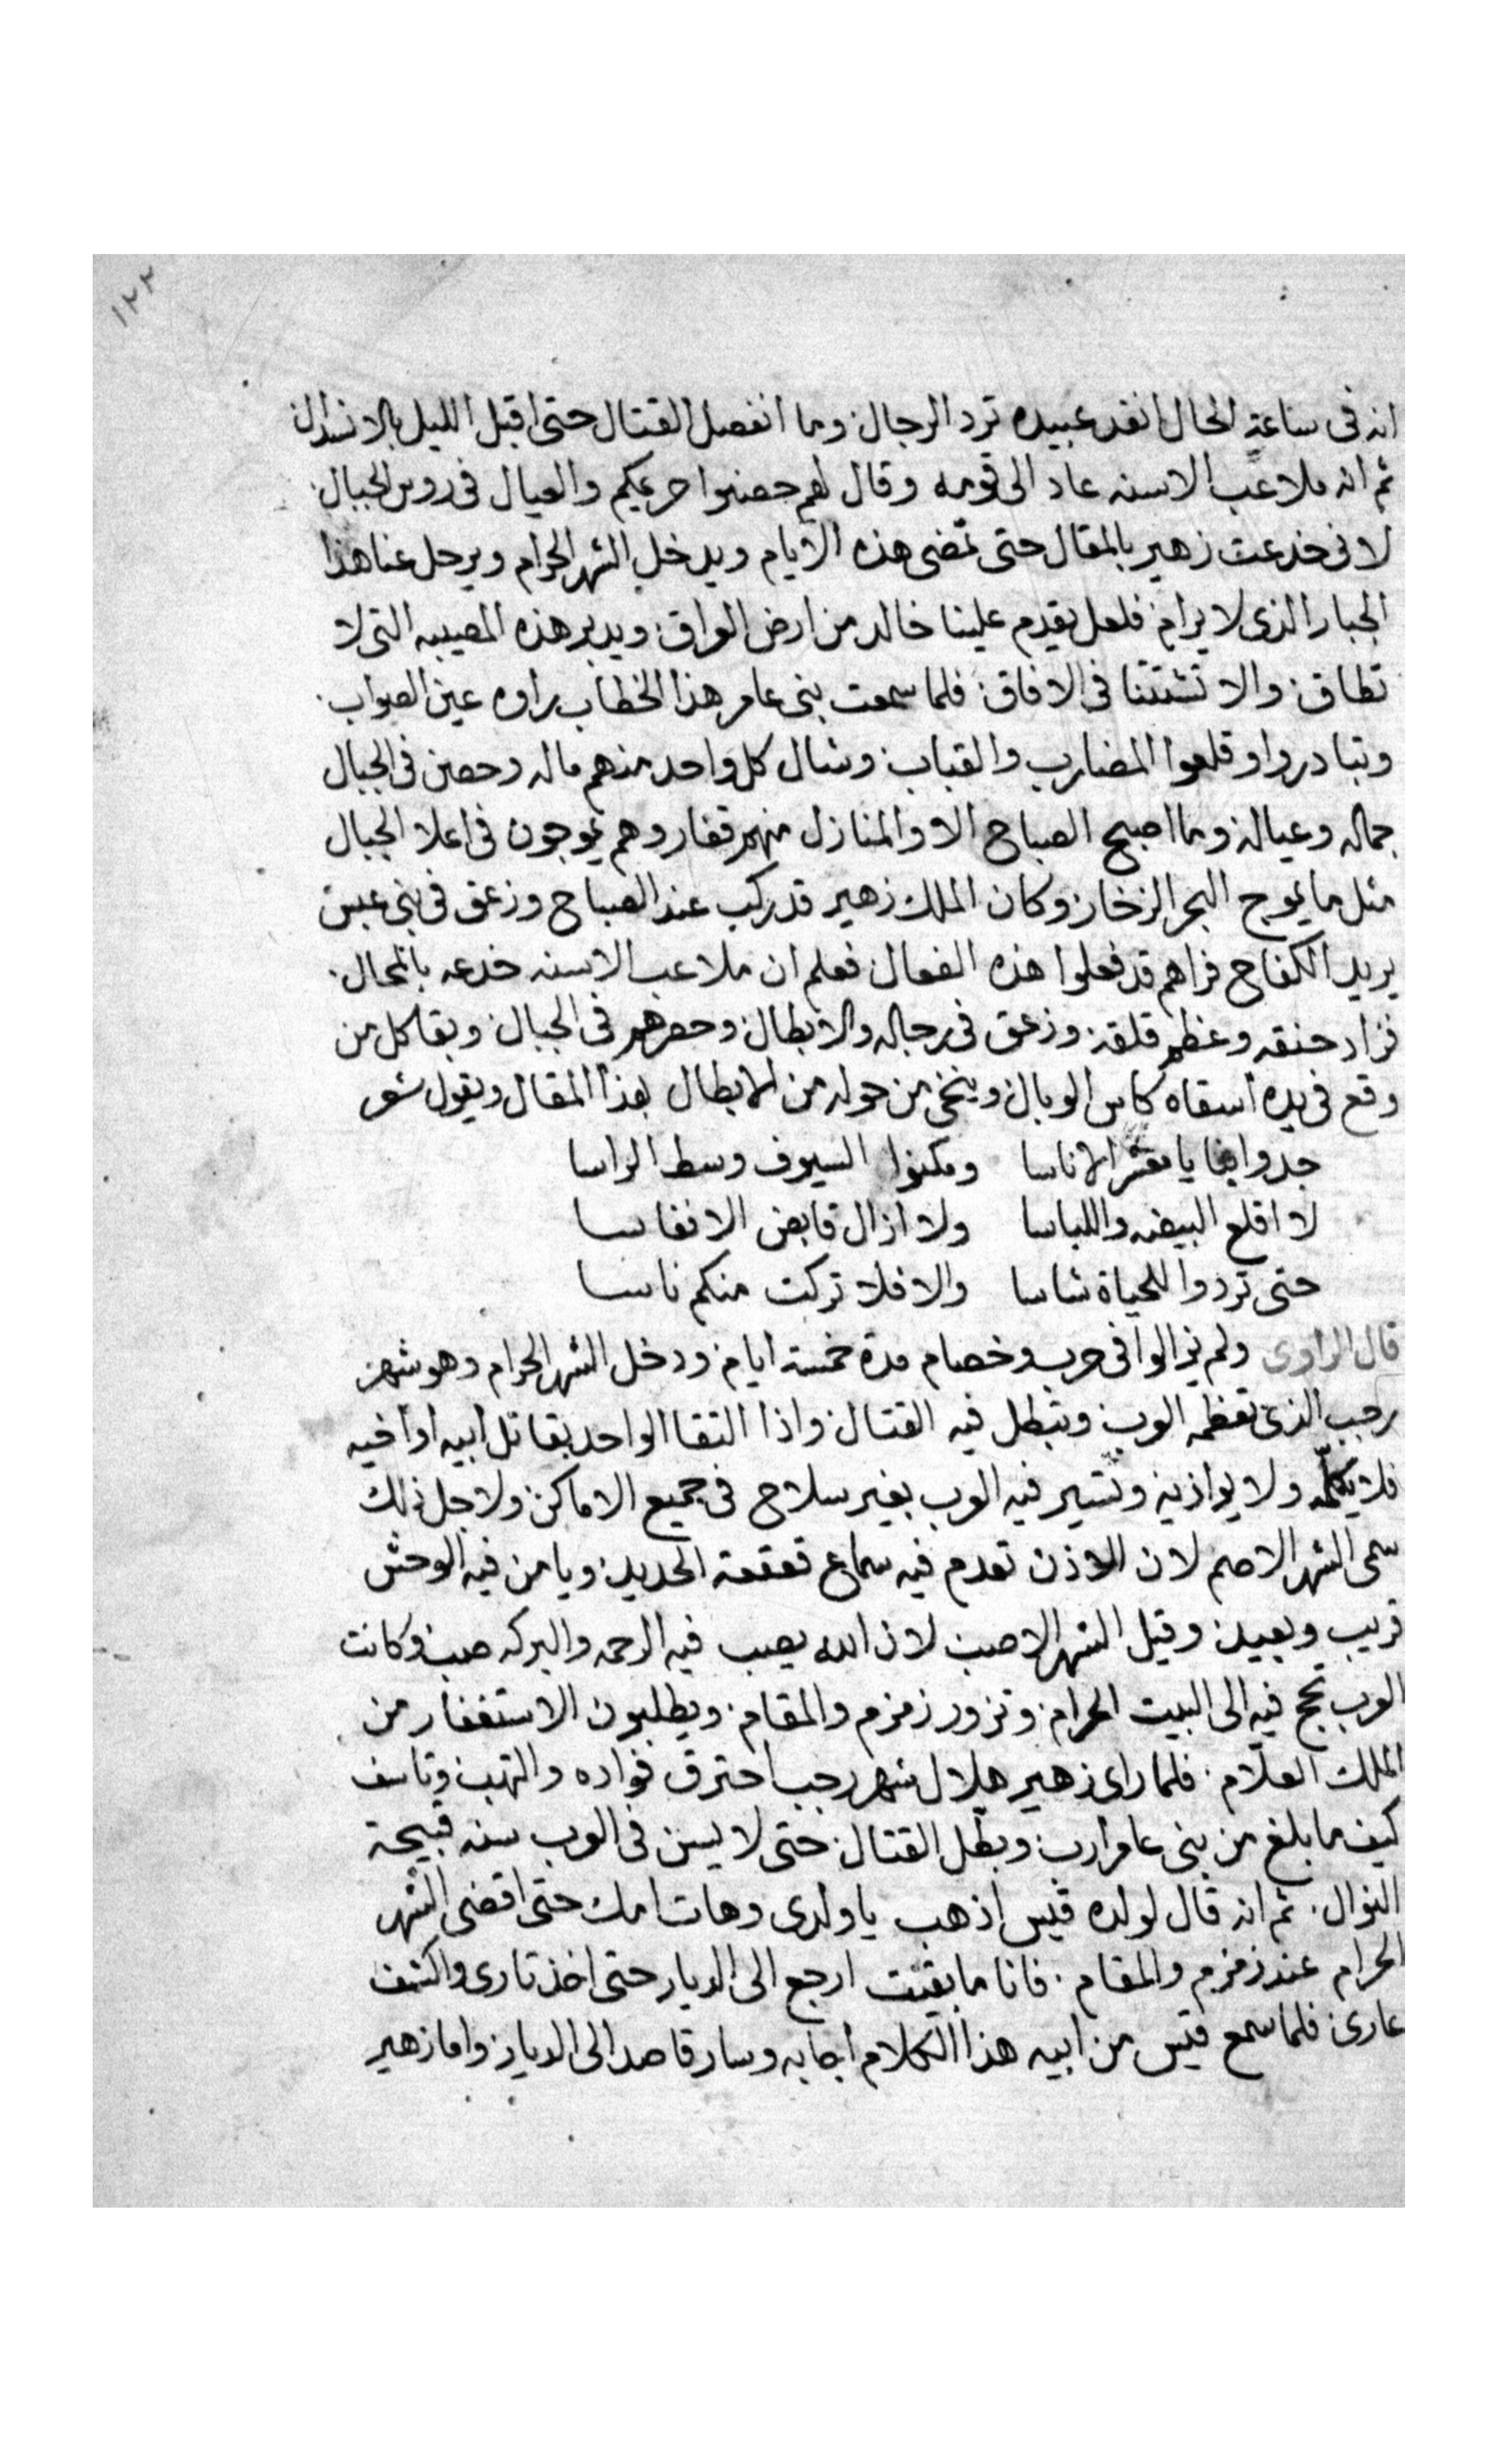 ١٢٢
انه فى ساعة الحال انفد عبيده ترد الرجال وما انفصل القتال حتى اقبل الليل بالانسدال
ثم انه ملاعب الاسنه عاد الى قومه وقال لهم حصنوا حريمكم والعيال فى روس الجبال
لانى خدعت زهير بالمقال حتى تمضى هذه الايام ويدخل الشهر الحرام ويرحل عنا هذا
الجبار الذى لا يرام فلعل يقدم علينا خالد من ارض العراق ويدبر هذه المصيبه التى لا
تطاق والا تشتتنا فى الافاق فلما سمعت بنى عامر هذا الخطاب راوه عين الصواب
وتبادروا وقلعوا المضارب والقباب وشال كل واحد منهم ماله وحصن فى الجبال
جماله وعياله وما اصبح الصباح الا والمنازل منهم قفار وهم يموجون فى اعلا الجبال
مثل ما يموج البحر الزخار وكان الملك زهير قد ركب عند الصباح وزعق فى بنى عبس
يريد الكفاح فراهم قد فعلوا هذه الفعال فعلم ان ملاعب الاسنه خدعه بالمحال
فزاد حنقه وعظم قلقه وزعق فى رجاله والابطال وحصرهم فى الجبال وبقا كل من
وقع فى يده اسقاه كاس الوبال وينخى من حوله من الابطال بهذا المقال ويقول شعر
جدوا بنا يا معشر الاناسا ومكنوا السيوف وسط الراسا
لا اقلع البيضه واللباسا ولا ازال قابض الانفاسا
حتى تردوا للحياة شاسا والا فلا تركت منكم ناسا
قال الراوى ولم يزالوا فى حرب وخصام مدة خمسة ايام ودخل الشهر الحرام وهو شهر
رجب الذى تعظمه العرب وتبطل فيه القتال واذا التقا الواحد بقاتل ابيه او اخيه
فلا يكلمه ولا يواذيه وتسير فيه العرب بغير سلاح فى جميع الاماكن ولاجل ذلك
سمى الشهر الاصم لان الاذن تعدم فيه سماع قعقعة الحديد ويامن فيه الوحش
قريب وبعيد وقيل الشهر الاصب لان الله يصب فيه الرحمه والبركه صب وكانت
العرب تحج فيه الى البيت الحرام وتزور زمزم والمقام ويطلبون الاستغفار من
الملك العلّام فلما راى زهير هلال شهر رجب احترق فواده والتهب وتاسف
كيف ما بلغ من بنى عامر ارب وبطل القتال حتى لا يسن فى العرب سنه قبيحة
النوال ثم انه قال لولده قيس اذهب يا ولدى وهات امك حتى اقضى الشهر
الحرام عند زمزم والمقام فانا ما بقيت ارجع الى الديار حتى اخذ تارى واكشف
عارى فلما سمع قيس من ابيه هذا الكلام اجابه وسار قاصد الى الديار واما زهير